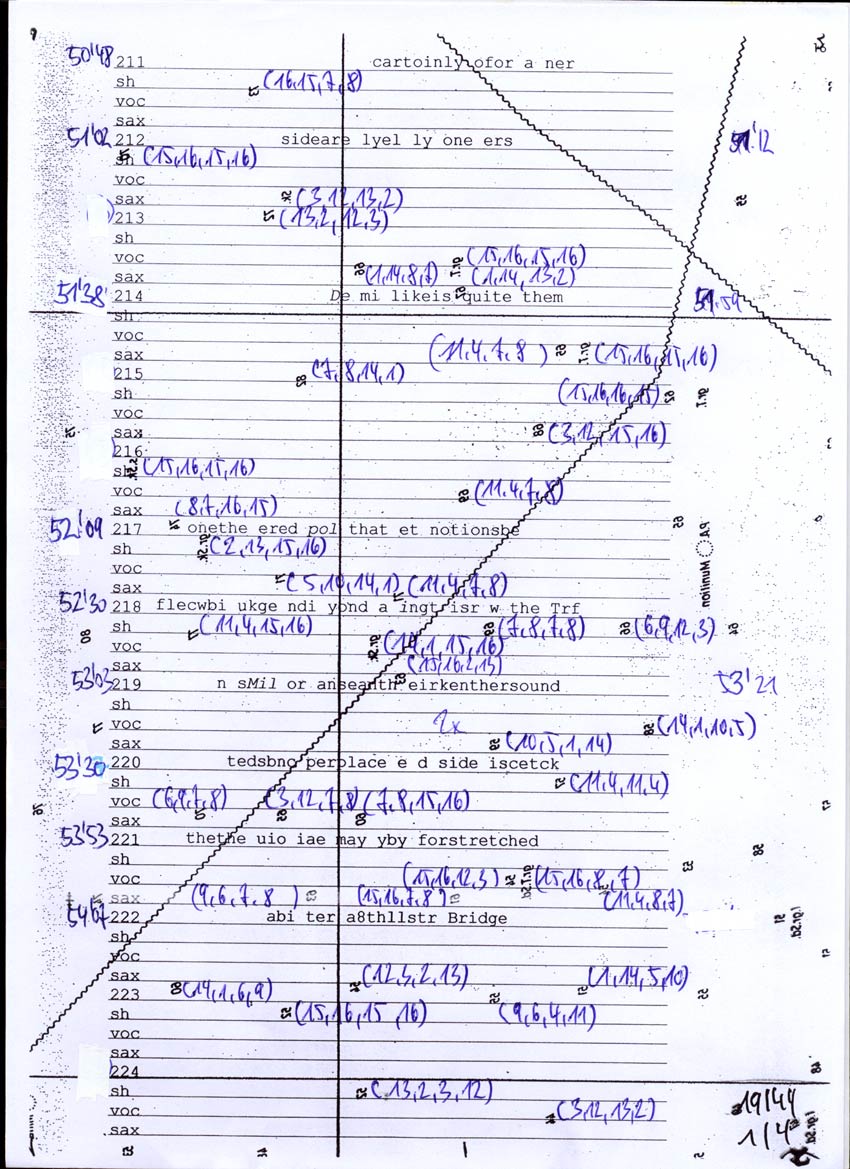 50'48 211 cartoinly ofor a ner
sh (16,15,7,8)
voc
sax
51'02 212 sideare lyel ly one ers 51'12
sh (15,16,15,16)
voc
sax (3,12,13,2)
213 (13,2,12,3)
sh
voc (15,16,15,16)
sax (1,14,8,7) (1,14,13,2)
51'38 214 De mi likeis quite them 51.59
sh
voc
sax (11,4,7,8) (15,16,15,16)
215 (7,8,14,1)
sh (15,16,16,15)
voc
sax (3,12,15,16)
216
sh (15,16,15,16)
voc (11.4,7,8)
sax (8,7,16,15)
52'09 217 onethe ered pol that et notionsbe
sh (2,13,15,16)
voc
sax (5,10,14,1) (11,4,7,8)
52'30 218 flecwbi ukge ndi yond a ingt isr w the Trf
sh (11,4,15,16) (7,8,7,8) (6,9,12,3)
voc (14,1,15,16)
sax (15,16,2,13)
53'03 219 n sMil or anseanth eirkenthersound 53'21
sh
voc 2x (14,1,10,5)
sax (10,5,1,14)
53'30 220 tedsbno perplace e d side iscetck
sh (11,4,11,4)
voc (6,9,7,8) (3,12,7,8) (7,8,15,16)
sax
53'53 221 thethe uio iae may yby forstretched
sh
voc (15,16,12,3) (15,16,8,7)
sax (9,6,7,8) (15,16,7,8) (11,4,8,7)
222 abi ter a8thllstr Bridge
sh
voc
sax (12,3,2,13) (1,14,5,10)
223 (14,1,6,9)
sh (15,16,15,16) (9,6,4,11)
voc
sax
224
sh (13,2,3,12)
voc (3,12,13,2)
sax
19/44
1/4